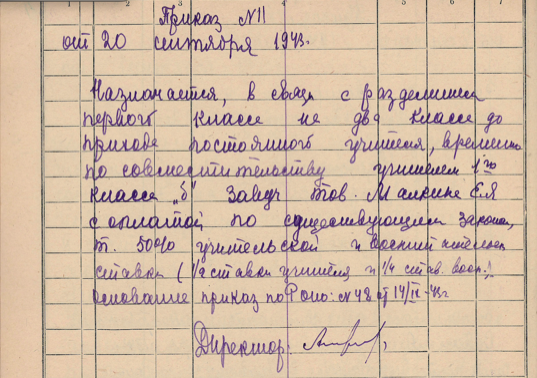 Приказ №11
от 20 сентября 1943г.
Назначается, в связи с разделением
первого класса на два класса до
прихода постоянного учителя, временно
по совместительству учителем 1го
класса „б" Завуч тов. Малкина Е.Я
с оплатой по существующим законам,
т. 50% учительской и
ставки (1/2 ставки учителя и 1/4 став. восп.)
Основание приказ по Роно: №48 от 14/IX-43г
Директор: